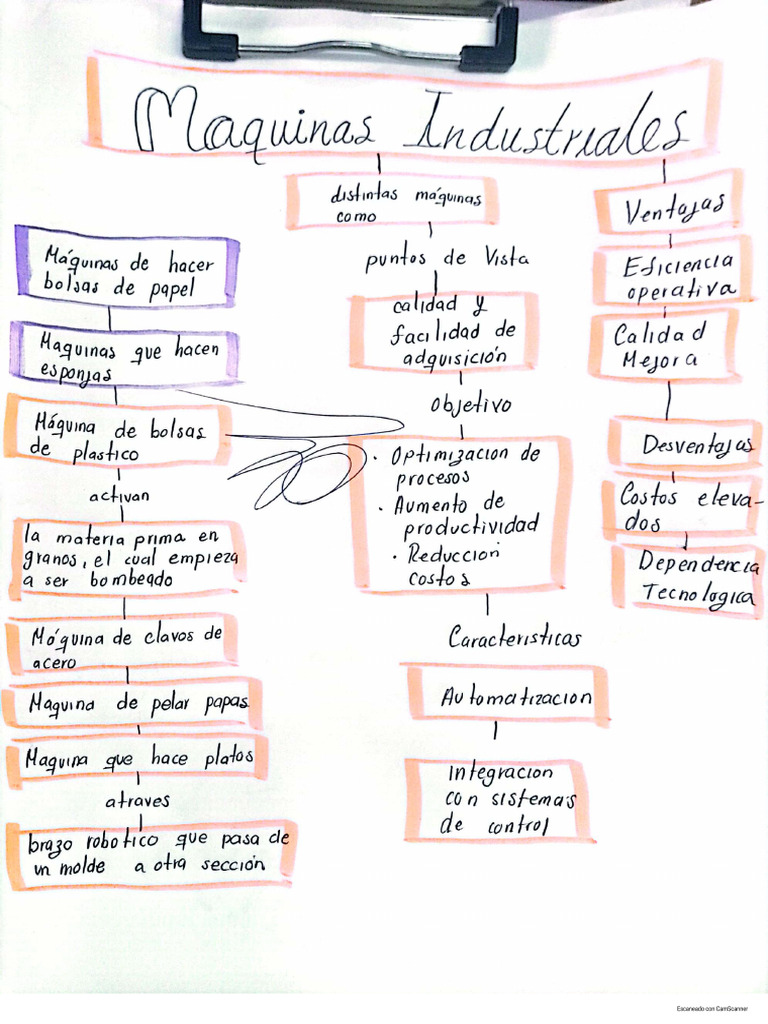 Maquinas Industriales
Máquinas de hacer
bolsas de papel
Maquinas que hacen
esponjas
Máquina de bolsas
de plastico
activan
la materia prima en
granos, el cual empieza
a ser bombeado
Máquina de clavos de
acero
Maquina de pelar papas
Maquina que hace platos
atraves
brazo robotico que pasa de
un molde a otra sección
distintas máquinas
como
puntos de Vista
calidad y
facilidad de
adquisición
Objetivo
· Optimizacion de
procesos
· Aumento de
productividad
· Reduccion
costos
Caracteristicas
Automatizacion
integracion
con sistemas
de control
Ventajas
Eficiencia
operativa
Calidad
Mejora
Desventajas
Costos eleva-
dos
Dependencia
Tecnologica
Escaneado con CamScanner